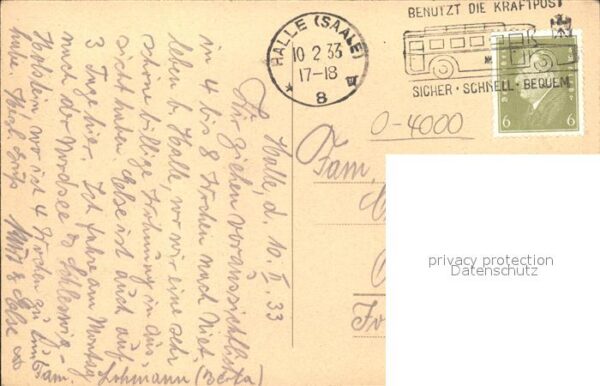 BENUTZT DIE KRAFTPOST
HALLE (SAALE)
10 2 33
17-18
* 8
SICHER · SCHNELL · BEQUEM
6 6
0-4000
Halle, d. 10. II. 33
Wir ziehen voraussichtlich
in 4 bis 8 Wochen nach Niet
leben b. Halle, wo wir eine sehr
schöne billige Wohnung in Aus
sicht haben. Else ist auch auf
3 Tage hier. Ich fahre am Montag
nach der Nordsee & Schleswig-
Holstein, wo ich 4 Wochen zu tun
habe. Herzl. Grüße
& Else
Lohmann
Fam.
privacy protection
Datenschutz